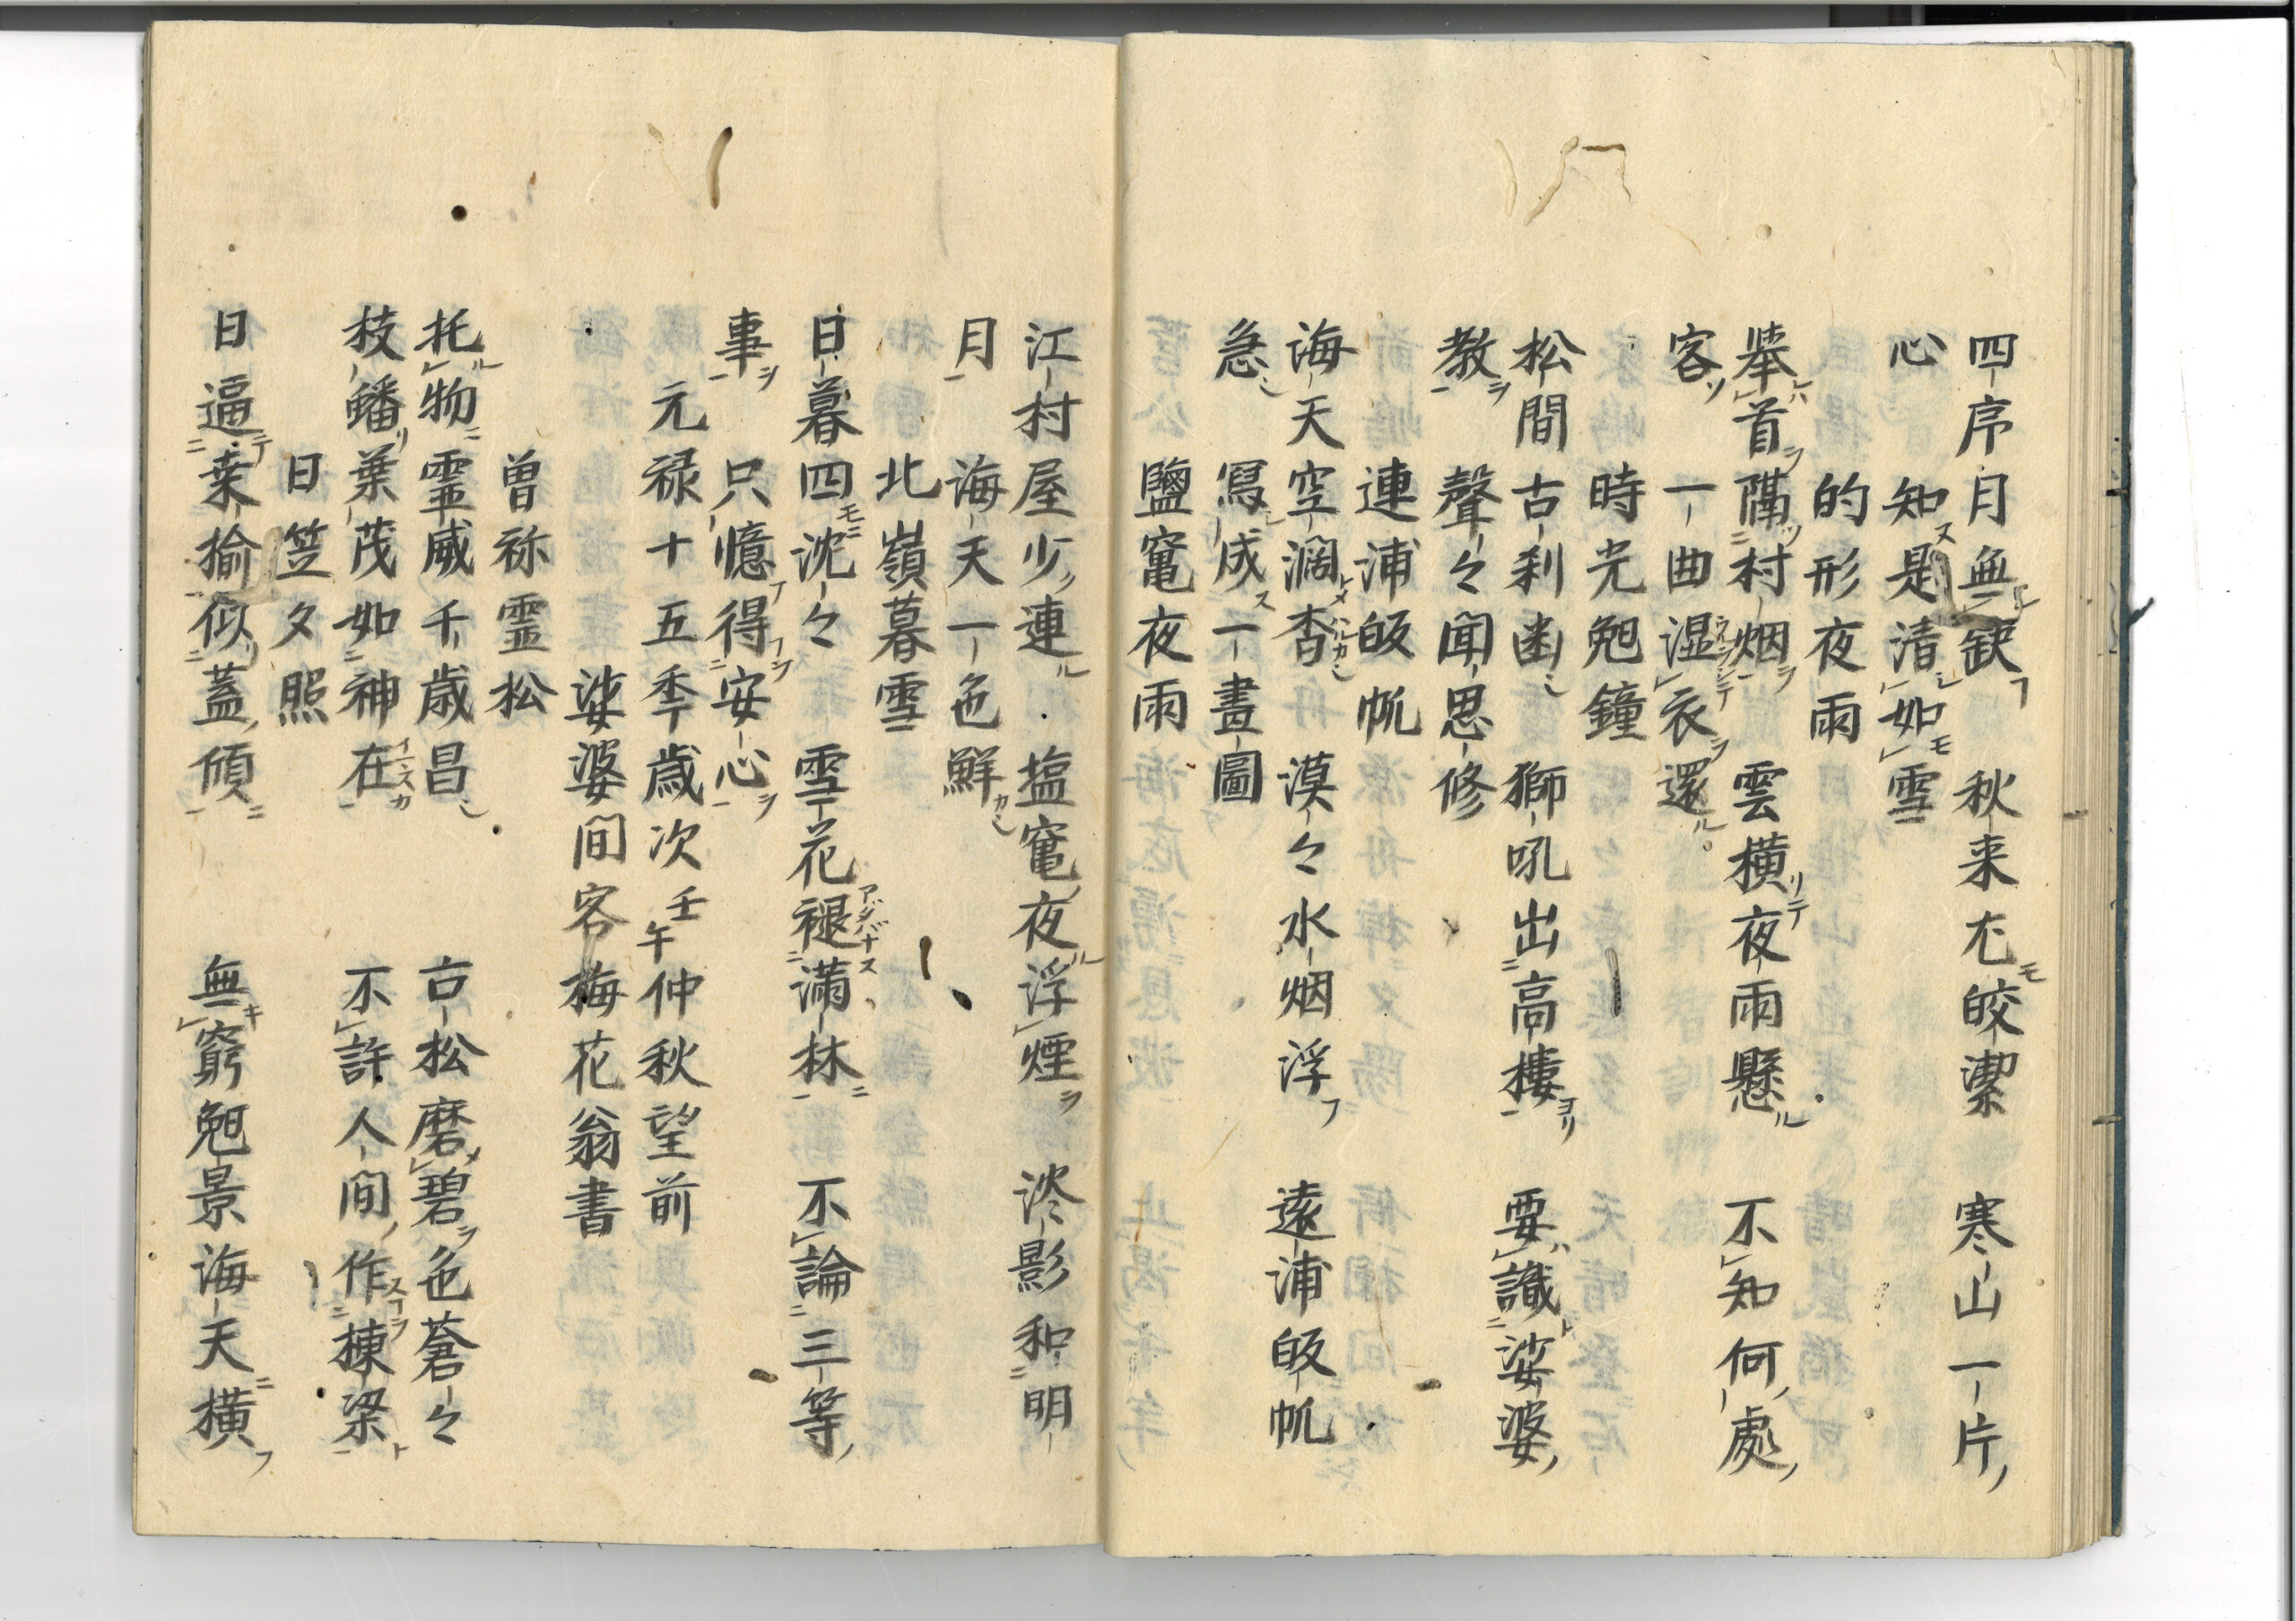 四序月無缺　秋来尤皎潔　寒山一片
心　知是清如雪
的形夜雨
挙首隔村烟　雲横夜雨懸　不知何處
客　一曲湿衣還
時光晩鐘
松間古刹幽　獅吼出高樓　要識娑婆
教　聲々聞思修
連浦皈帆
海天空濶杳　漠々水烟浮　遠浦皈帆
急　寫成一畫圖
鹽竃夜雨
江村屋少連　塩竃夜浮煙　淡影和明
月　海天一色鮮
北嶺暮雪
日暮四沈々　雪花褪満林　不論三等
事　只憶得安心
元禄十五季歳次壬午仲秋望前
娑婆間客梅花翁書
曽祢霊松
托物霊威千歳昌　古松磨碧色蒼々
枝蟠葉茂如神在　不許人間作棟梁
日笠夕照
日逼桒揄似蓋傾　無窮晩景海天横